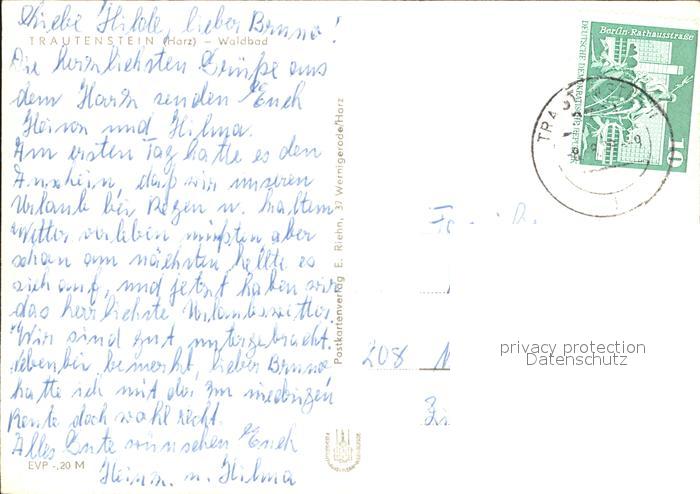 Liebe Hilde, lieber Bruno!
TRAUTENSTEIN (Harz) – Waldbad
Die herzlichsten Grüße aus
dem Harz senden Euch
Heinz und Hilma.
Am ersten Tag hatte es den
Anschein, daß wir unseren
Urlaub bei Regen u. kaltem
Wetter verleben müßten aber
schon am nächsten hellte es
sich auf, und jetzt haben wir
das herrlichste Urlaubswetter.
Wir sind gut untergebracht.
Nebenbei bemerkt, lieber Bruno
hatte ich mit der zu niedrigen
Rente doch wohl recht.
Alles Gute wünschen Euch
Heinz u. Hilma
EVP -,20 M
Postkartenverlag E. Riehn, 37 Wernigerode/Harz
Berlin-Rathausstraße
DEUTSCHE DEMOKRATISCHE REPUBLIK
10
208 N
privacy protection
Datenschutz